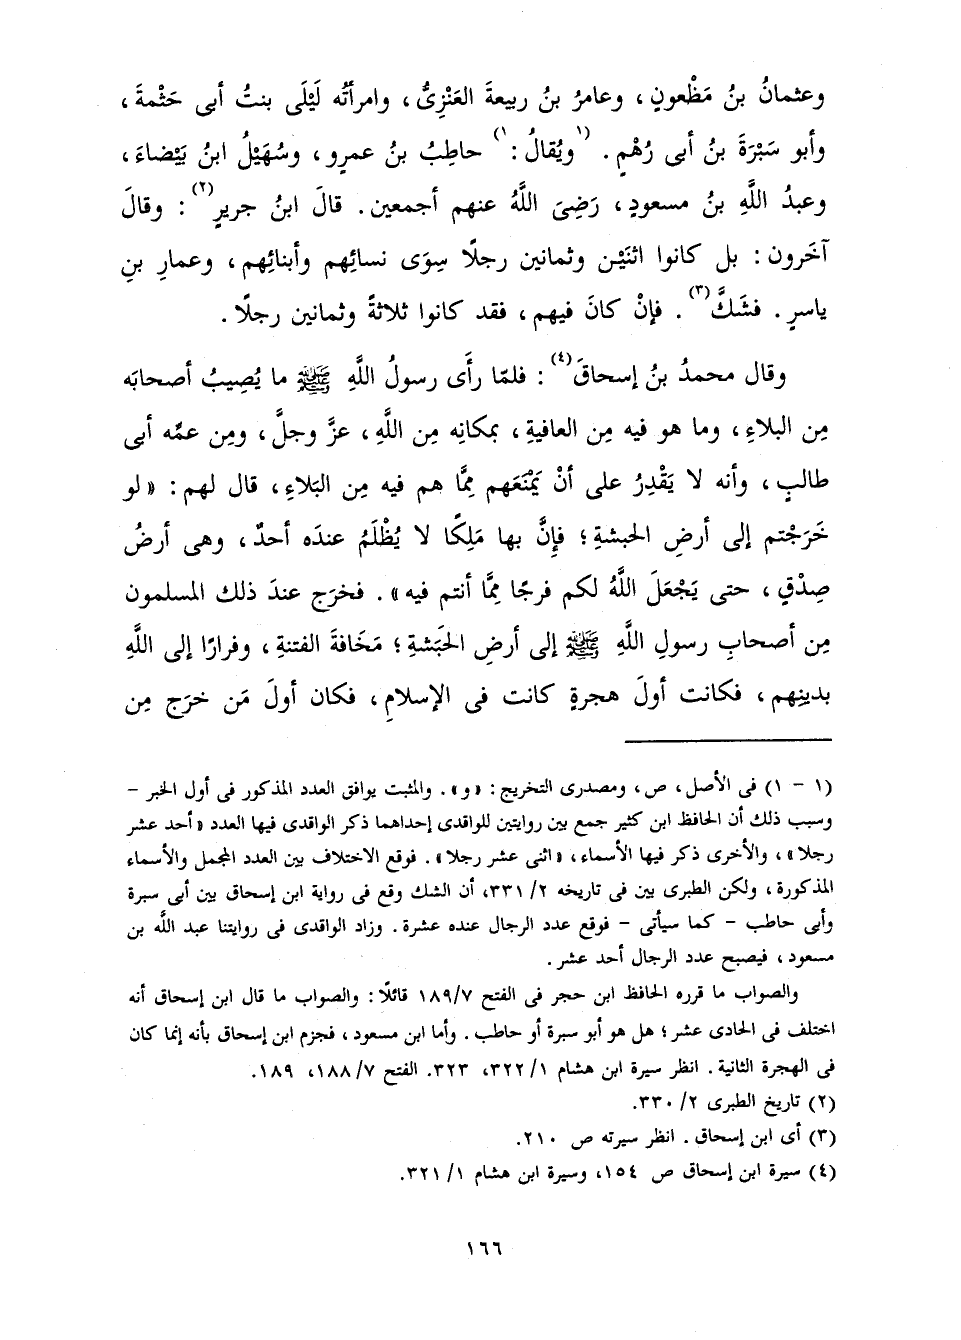 وعثمانُ بنُ مَظْعونٍ، وعامرُ بنُ ربيعةَ العَنْزِىُّ، وامرأتُه لَيْلَى بنتُ أبى حَثْمةَ،
وأبو سَبْرَةَ بنُ أبى رُهْمٍ. (١ ويُقالُ: ١) حاطِبُ بنُ عمرٍو، وسُهَيْلُ ابنُ بَيْضاءَ،
وعبدُ اللَّهِ بنُ مسعودٍ، رَضِىَ اللَّهُ عنهم أجمعين. قالَ ابنُ جريرٍ(٢): وقالَ
آخَرون: بل كانوا اثنَيْن وثمانين رجلًا سِوَى نسائِهم وأبنائِهم، وعمارِ بنِ
ياسرٍ. فشَكَّ(٣). فإنْ كانَ فيهم، فقد كانوا ثلاثةً وثمانين رجلًا.
وقال محمدُ بنُ إسحاقَ(٤): فلمّا رأَى رسولُ اللَّهِ ﷺ ما يُصِيبُ أصحابَه
مِن البلاءِ، وما هو فيه مِن العافيةِ، بمكانِه مِن اللَّهِ، عزَّ وجلَّ، ومِن عمِّه أبى
طالبٍ، وأنه لا يَقْدِرُ على أنْ يَمْنَعَهم مِمَّا هم فيه مِن البَلاءِ، قال لهم: «لو
خَرَجْتم إلى أرضِ الحبشةِ؛ فإنَّ بها مَلِكًا لا يُظْلَمُ عندَه أحدٌ، وهى أرضُ
صِدْقٍ، حتى يَجْعَلَ اللَّهُ لكم فرجًا مِمَّا أنتم فيه». فخرَج عندَ ذلك المسلمون
مِن أصحابِ رسولِ اللَّهِ ﷺ إلى أرضِ الحَبَشةِ؛ مَخَافةَ الفتنةِ، وفرارًا إلى اللَّهِ
بدينِهم، فكانت أولَ هجرةٍ كانت فى الإسلامِ، فكان أولَ مَن خرَج مِن
(١ - ١) فى الأصل، ص، ومصدرى التخريج: «و». والمثبت يوافق العدد المذكور فى أول الخبر -
وسبب ذلك أن الحافظ ابن كثير جمع بين روايتين للواقدى إحداهما ذكر الواقدى فيها العدد «أحد عشر
رجلا»، والأخرى ذكر فيها الأسماء، «اثنى عشر رجلا». فوقع الاختلاف بين العدد المجمل والأسماء
المذكورة، ولكن الطبرى بين فى تاريخه ٢/ ٣٣١، أن الشك وقع فى رواية ابن إسحاق بين أبى سبرة
وأبى حاطب - كما سيأتى - فوقع عدد الرجال عنده عشرة. وزاد الواقدى فى روايتنا عبد اللَّه بن
مسعود، فيصبح عدد الرجال أحد عشر.
والصواب ما قرره الحافظ ابن حجر فى الفتح ١٨٩/٧ قائلًا: والصواب ما قال ابن إسحاق أنه
اختلف فى الحادى عشر؛ هل هو أبو سبرة أو حاطب. وأما ابن مسعود، فجزم ابن إسحاق بأنه إنما كان
فى الهجرة الثانية. انظر سيرة ابن هشام ١/ ٣٢٢، ٣٢٣. الفتح ٧/ ١٨٨، ١٨٩.
(٢) تاريخ الطبرى ٢/ ٣٣٠.
(٣) أى ابن إسحاق. انظر سيرته ص ٢١٠.
(٤) سيرة ابن إسحاق ص ١٥٤، وسيرة ابن هشام ١/ ٣٢١.
١٦٦